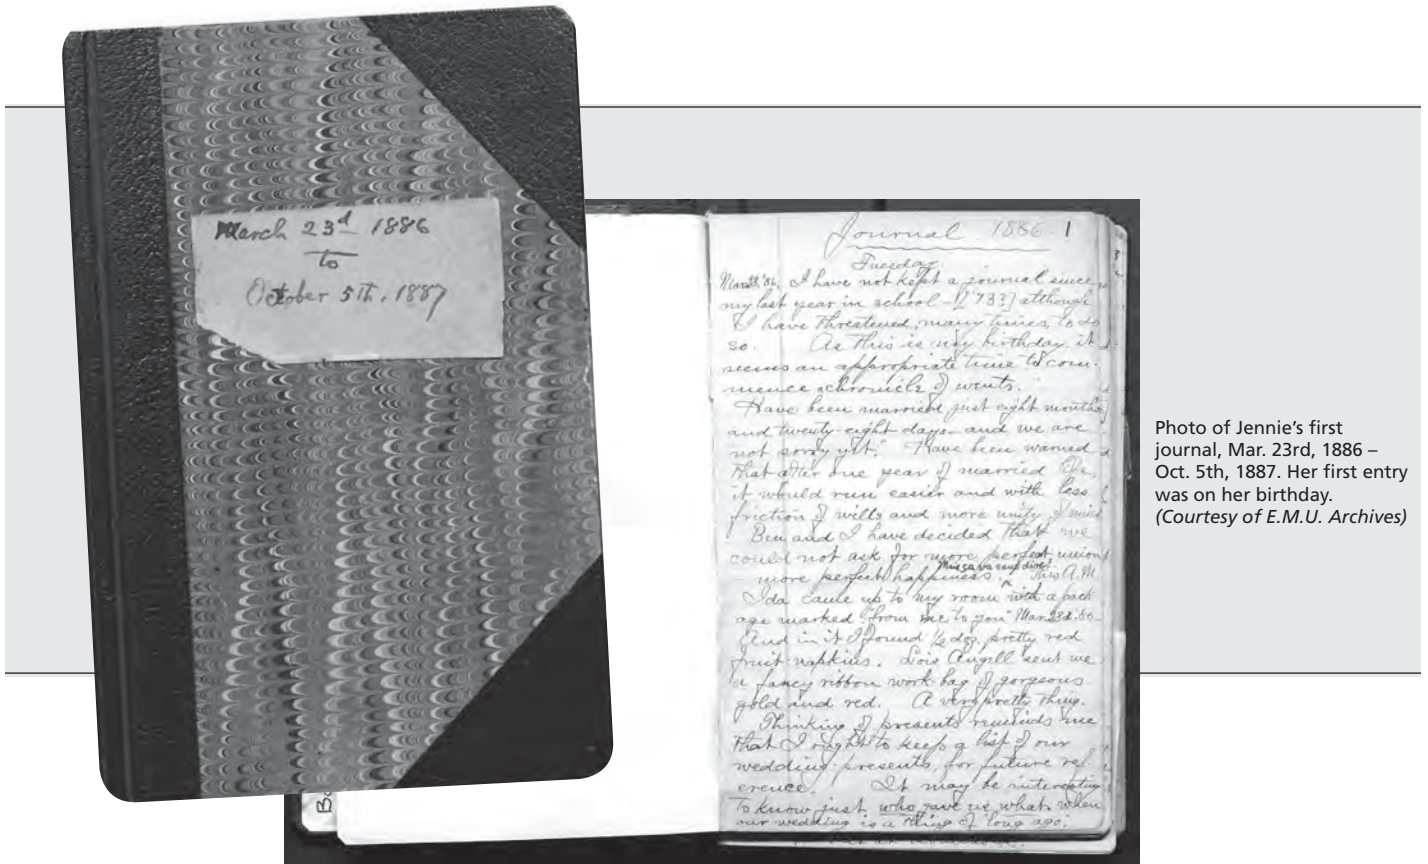 March 23d 1886
to
October 5th, 1887
Journal 1886 - 1
Tuesday
I have not kept a journal since
my last year in school - ['73?] although
I have threatened, many times, to do
so. As this is my birthday, it
seems an appropriate time to com-
mence a chronicle of events.
Have been married just eight months
and twenty-eight days and we are
not sorry yet." Have been warned
that after one year of married life
it would run easier and with less
friction of wills and more unity of mind
Ben and I have decided that we
could not ask for more perfect union
more perfect happiness. This A.M.
Ida came up to my room with a pack
age marked "From me to you" Mar. 23d. 86-
And in it I found 1/2 doz. pretty red
fruit-napkins. Lois Angell sent me
a fancy ribbon work-bag of gorgeous
gold and red. A very pretty thing.
Thinking of presents reminds me
that I ought to keep a list of our
wedding-presents, for future ref
erence. It may be interesting
to know just who gave us what when
our wedding is a thing of long ago;
Photo of Jennie's first
journal, Mar. 23rd, 1886 –
Oct. 5th, 1887. Her first entry
was on her birthday.
(Courtesy of E.M.U. Archives)